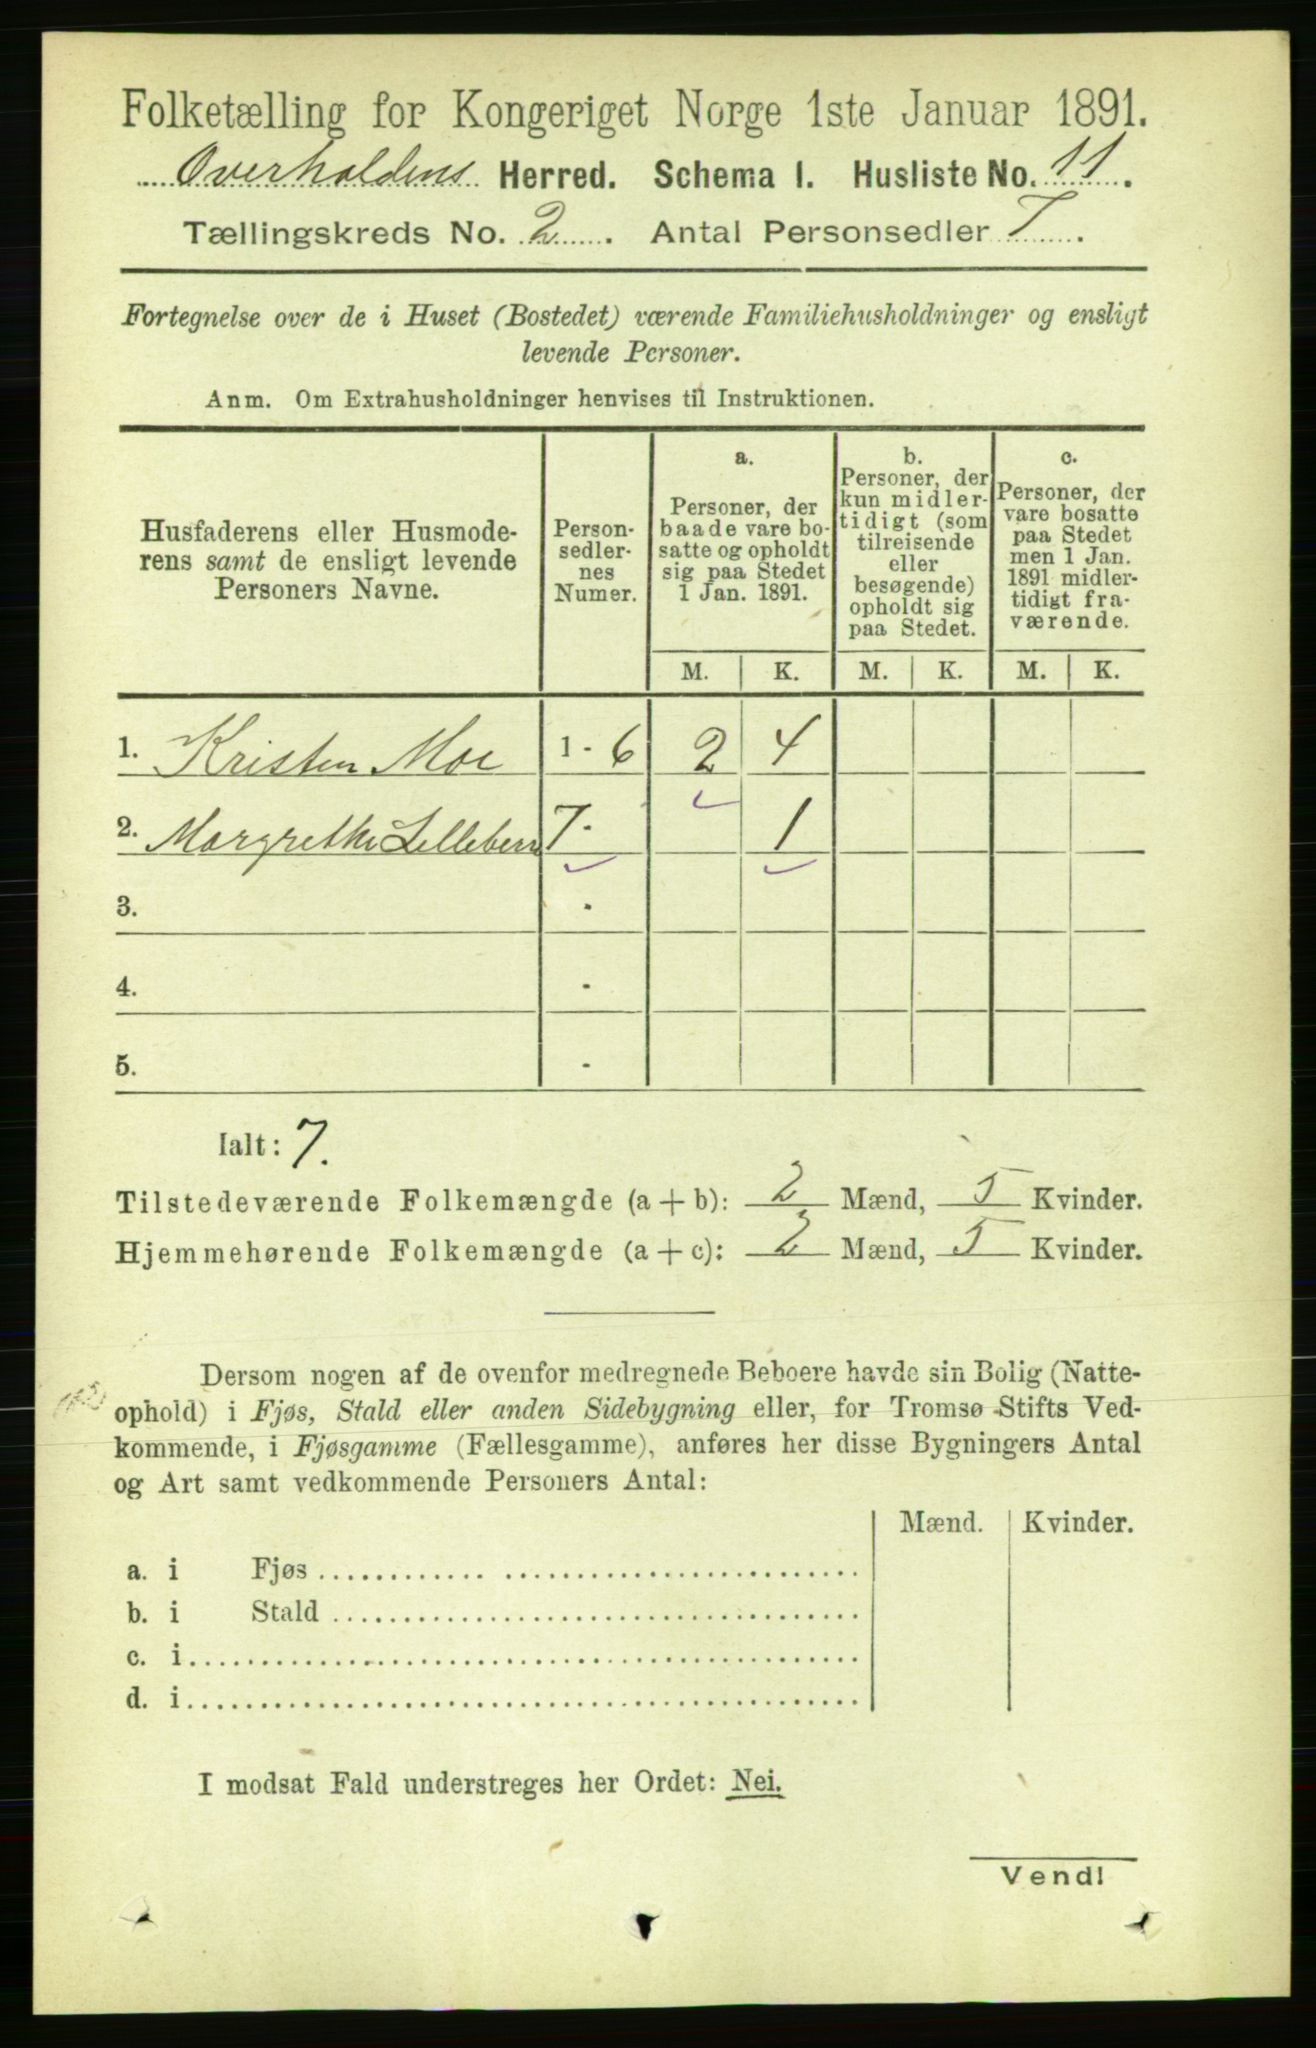 Folketælling for Kongeriget Norge 1ste Januar 1891.
Overhaldens Herred. Schema I. Husliste No. 11.
Tællingskreds No. 2. Antal Personsedler 7.
Fortegnelse over de i Huset (Bostedet) værende Familiehusholdninger og ensligt
levende Personer.
Anm. Om Extrahusholdninger henvises til Instruktionen.
Husfaderens eller Husmode-
rens samt de ensligt levende
Personers Navne.
Person-
sedler-
nes
Numer.
a.
Personer, der
baade vare bo-
satte og opholdt
sig paa Stedet
1 Jan. 1891.
b.
Personer, der
kun midler-
tidigt (som
tilreisende
eller
besøgende)
opholdt sig
paa Stedet.
c.
Personer, der
vare bosatte
paa Stedet
men 1 Jan.
1891 midler-
tidigt fra-
værende.
M. K. M. K. M. K.
1. Kristen Moe 1 - 6 2 4
2. Margrethe 7 - 1
3. -
4. -
5. -
Ialt: 7.
Tilstedeværende Folkemængde (a + b): 2 Mænd, 5 Kvinder.
Hjemmehørende Folkemængde (a + c): 2 Mænd, 5 Kvinder.
Dersom nogen af de ovenfor medregnede Beboere havde sin Bolig (Natte-
ophold) i Fjøs, Stald eller anden Sidebygning eller, for Tromsø Stifts Ved-
kommende, i Fjøsgamme (Fællesgamme), anføres her disse Bygningers Antal
og Art samt vedkommende Personers Antal:
Mænd. Kvinder.
a. i Fjøs
b. i Stald
c. i
d. i
I modsat Fald understreges her Ordet: Nei.
Vend!